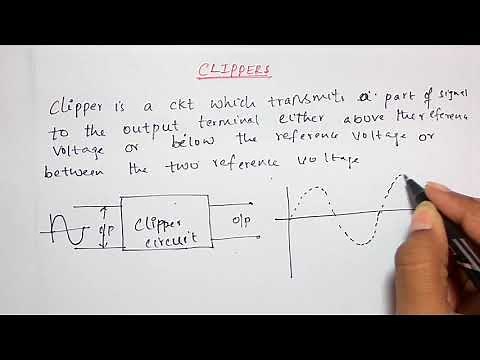 CLIPPERS
Clipper is a ckt which transmits a part of signal
to the output terminal either above the reference
voltage or below the reference voltage or
between the two reference voltage
o/p Clipper o/p
circuit